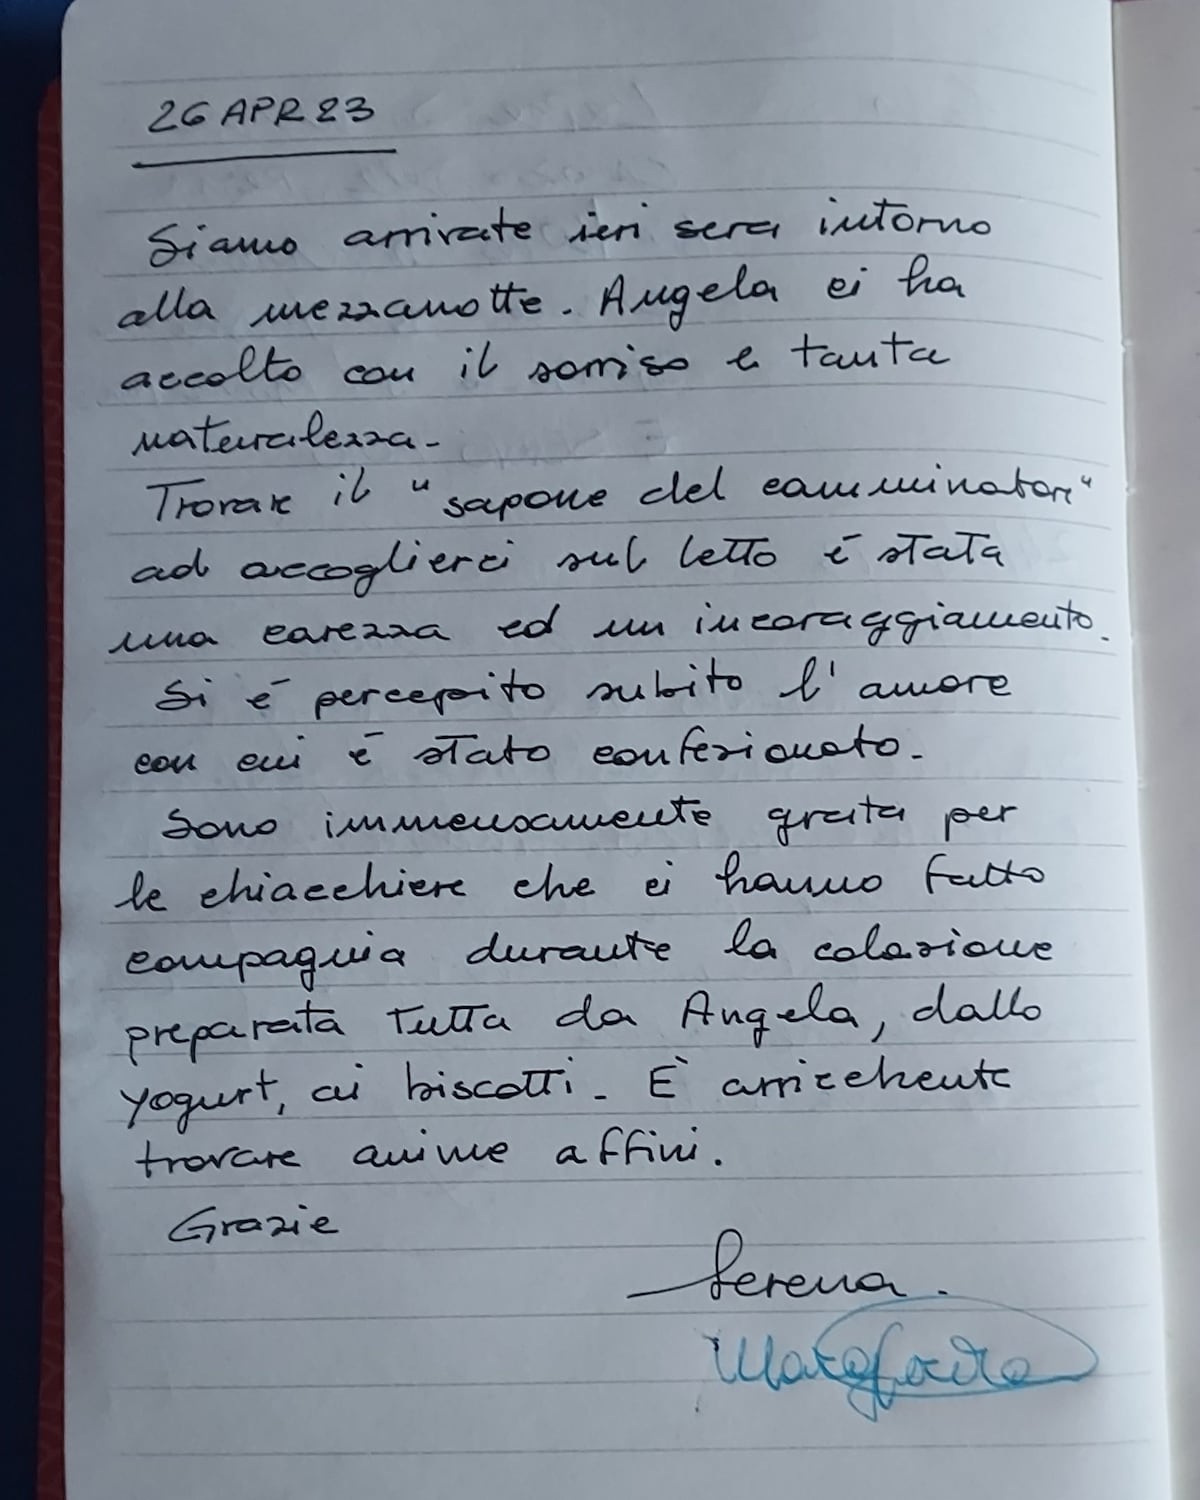 26 APR 23
Siamo arrivate ieri sera intorno
alla mezzanotte. Angela ci ha
accolto con il sorriso e tanta
naturalezza.
Trovare il "sapone del camminatore"
ad accoglierci sul letto è stata
una carezza ed un incoraggiamento.
Si è percepito subito l'amore
con cui è stato confezionato.
Sono immensamente grata per
le chiacchiere che ci hanno fatto
compagnia durante la colazione
preparata tutta da Angela, dallo
yogurt, ai biscotti. È arricchente
trovare anime affini.
Grazie
Serena.
Margherita